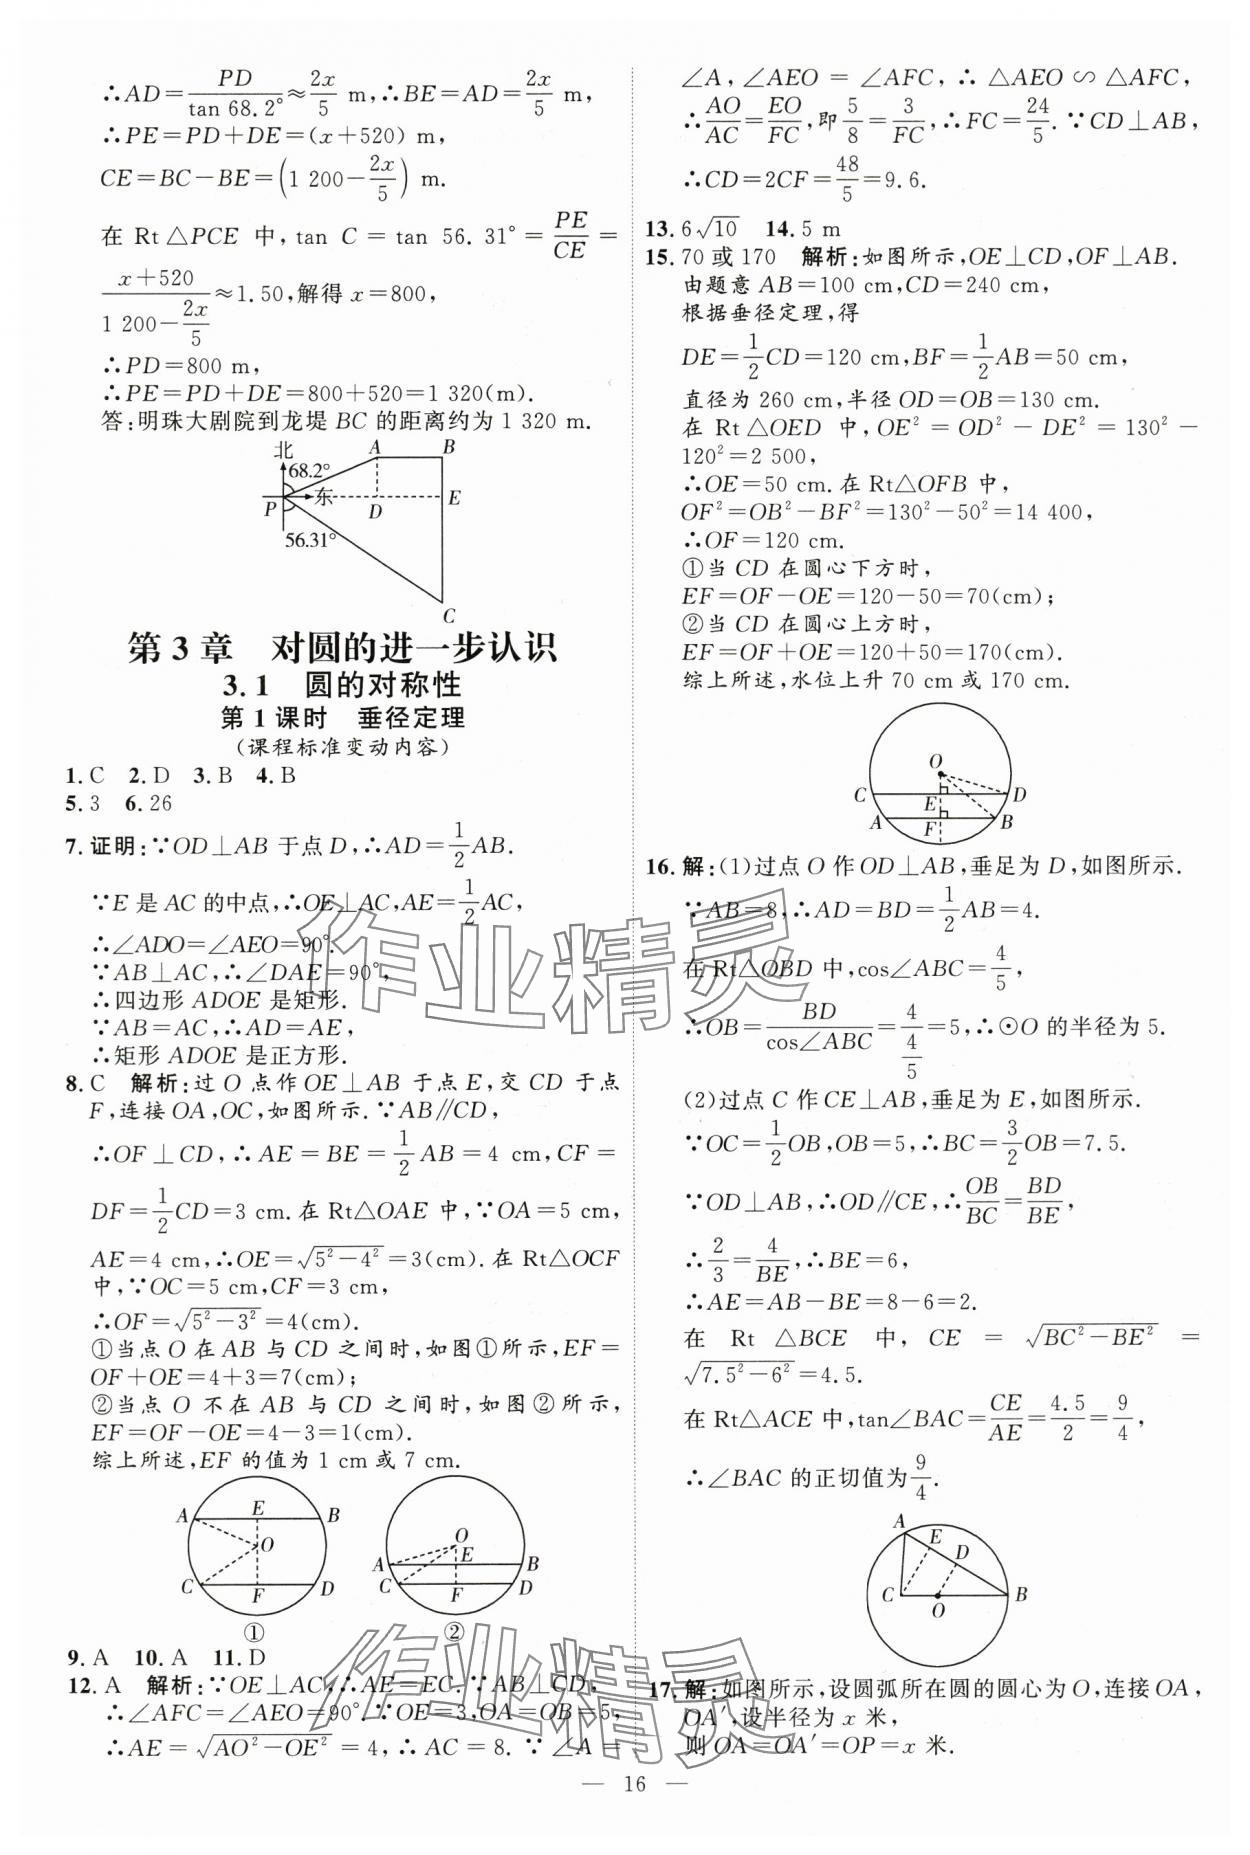 ∴AD=PD/tan 68.2°≈2x/5 m,∴BE=AD=2x/5 m,
∴PE=PD+DE=(x+520) m,
CE=BC-BE=(1 200-2x/5) m.
在 Rt△PCE 中,tan C=tan 56.31°=PE/CE=
(x+520)/(1 200-2x/5)≈1.50,解得 x=800,
∴PD=800 m,
∴PE=PD+DE=800+520=1 320(m).
答:明珠大剧院到龙堤 BC 的距离约为 1 320 m.
北
A
B
68.2°
东
P
D
E
56.31°
C
第 3 章 对圆的进一步认识
3.1 圆的对称性
第 1 课时 垂径定理
(课程标准变动内容)
1.C 2.D 3.B 4.B
5.3 6.26
7.证明:∵OD⊥AB 于点 D,∴AD=1/2AB.
∵E 是 AC 的中点,∴OE⊥AC,AE=1/2AC,
∴∠ADO=∠AEO=90°.
∵AB⊥AC,∴∠DAE=90°,
∴四边形 ADOE 是矩形.
∵AB=AC,∴AD=AE,
∴矩形 ADOE 是正方形.
8.C 解析:过 O 点作 OE⊥AB 于点 E,交 CD 于点
F,连接 OA,OC,如图所示.∵AB∥CD,
∴OF⊥CD,∴AE=BE=1/2AB=4 cm,CF=
DF=1/2CD=3 cm.在 Rt△OAE 中,∵OA=5 cm,
AE=4 cm,∴OE=√(5²-4²)=3(cm).在 Rt△OCF
中,∵OC=5 cm,CF=3 cm,
∴OF=√(5²-3²)=4(cm).
①当点 O 在 AB 与 CD 之间时,如图①所示,EF=
OF+OE=4+3=7(cm);
②当点 O 不在 AB 与 CD 之间时,如图②所示,
EF=OF-OE=4-3=1(cm).
综上所述,EF 的值为 1 cm 或 7 cm.
A E B
O
C F D
①
O
A E B
C F D
②
9.A 10.A 11.D
12.A 解析:∵OE⊥AC,∴AE=EC.∵AB⊥CD,
∴∠AFC=∠AEO=90°.∵OE=3,OA=OB=5,
∴AE=√(AO²-OE²)=4,∴AC=8.∵∠A=
∠A,∠AEO=∠AFC,∴△AEO∽△AFC,
∴AO/AC=EO/FC,即5/8=3/FC,∴FC=24/5.∵CD⊥AB,
∴CD=2CF=48/5=9.6.
13.6√10 14.5 m
15.70 或 170 解析:如图所示,OE⊥CD,OF⊥AB.
由题意 AB=100 cm,CD=240 cm,
根据垂径定理,得
DE=1/2CD=120 cm,BF=1/2AB=50 cm,
直径为 260 cm,半径 OD=OB=130 cm.
在 Rt△OED 中,OE²=OD²-DE²=130²-
120²=2 500,
∴OE=50 cm.在 Rt△OFB 中,
OF²=OB²-BF²=130²-50²=14 400,
∴OF=120 cm.
①当 CD 在圆心下方时,
EF=OF-OE=120-50=70(cm);
②当 CD 在圆心上方时,
EF=OF+OE=120+50=170(cm).
综上所述,水位上升 70 cm 或 170 cm.
O
C E D
A F B
16.解:(1)过点 O 作 OD⊥AB,垂足为 D,如图所示.
∵AB=8,∴AD=BD=1/2AB=4.
在 Rt△OBD 中,cos∠ABC=4/5,
∴OB=BD/cos∠ABC=4/(4/5)=5,∴⊙O 的半径为 5.
(2)过点 C 作 CE⊥AB,垂足为 E,如图所示.
∵OC=1/2OB,OB=5,∴BC=3/2OB=7.5.
∵OD⊥AB,∴OD∥CE,∴OB/BC=BD/BE,
∴2/3=4/BE,∴BE=6,
∴AE=AB-BE=8-6=2.
在 Rt△BCE 中,CE=√(BC²-BE²)=
√(7.5²-6²)=4.5.
在 Rt△ACE 中,tan∠BAC=CE/AE=4.5/2=9/4,
∴∠BAC 的正切值为9/4.
A
E
D
C
O
B
17.解:如图所示,设圆弧所在圆的圆心为 O,连接 OA,
OA′,设半径为 x 米,
则 OA=OA′=OP=x 米.
作业精灵
作业精灵
— 16 —